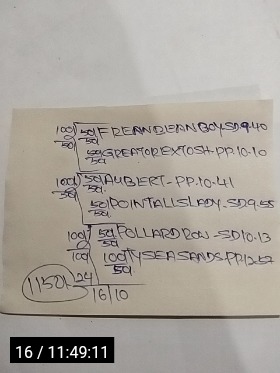 100/50 50/50 FREANDEANBOY-SD9.40
50/50 GREATOREXTOSH-PP.10.10
100/50 50/50 AUBERT-PP.10-41
50/50 POINTALISLADY-SD9.55
100/100 50/50 POLLARDROW-SD10-13
100/50 TYSEASANDSPP12-52
1150/-
24
16/10
16 / 11:49:11